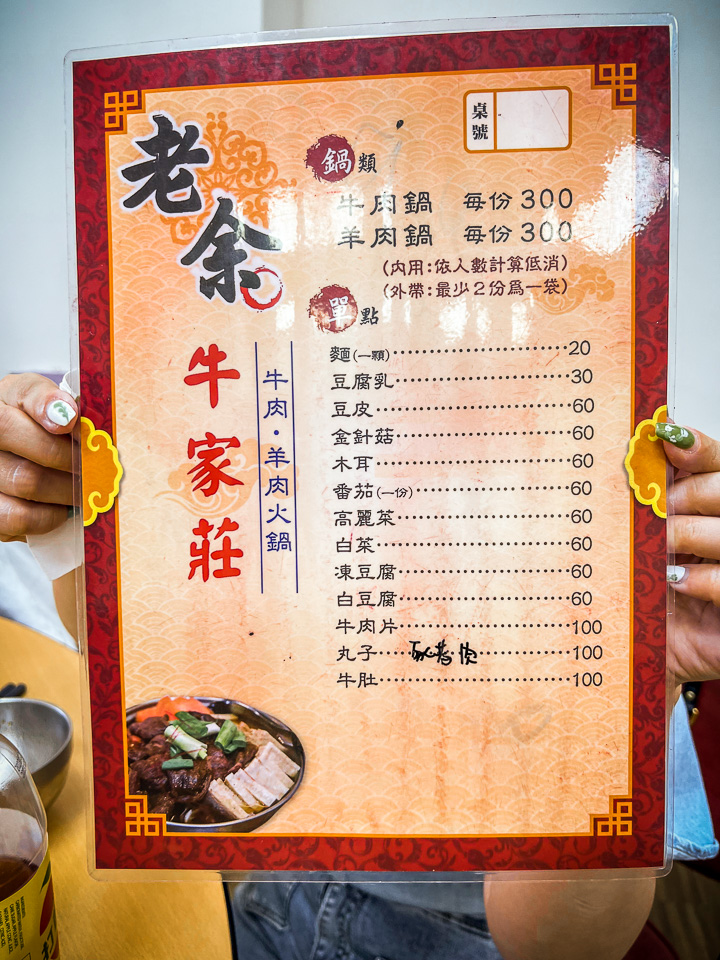 桌號
老余
牛家莊
牛肉·羊肉火鍋
鍋類
牛肉鍋 每份300
羊肉鍋 每份300
(內用:依人數計算低消)
(外帶:最少2份爲一袋)
單點
麵(一顆)························20
豆腐乳························30
豆皮························60
金針菇························60
木耳························60
番茄(一份)························60
高麗菜························60
白菜························60
凍豆腐························60
白豆腐························60
牛肉片························100
丸子························100
牛肚························100